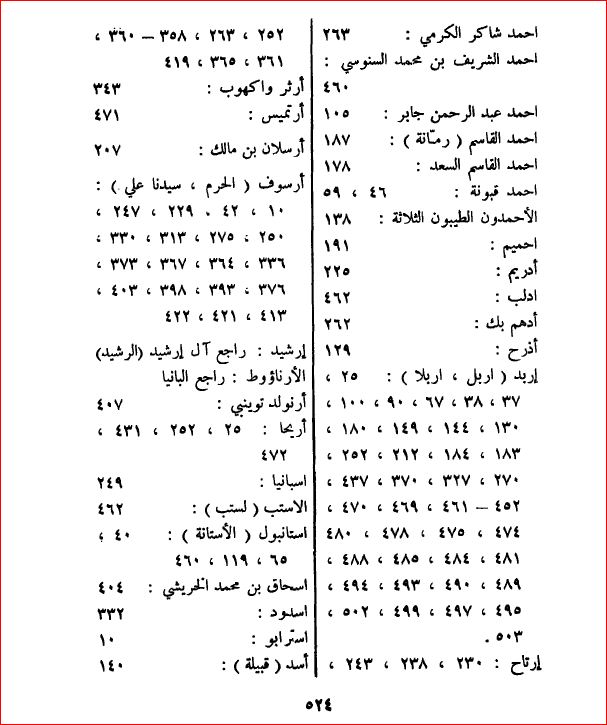 احمد شاكر الكرمي : ٢٦٣
احمد الشريف بن محمد السنوسي :
٤٦٠
احمد عبد الرحمن جابر : ١٠٥
احمد القاسم ( رمّانة ) : ١٨٧
احمد القاسم السعد : ١٧٨
احمد قبونة : ٤٦ ، ٥٩
الأحمدون الطيبون الثلاثة : ١٣٨
احميم : ١٩١
أدريم : ٢٢٥
ادلب : ٤٦٢
أدهم بك : ٢٦٢
أذرح : ١٢٩
إربد ( اربل ، اربلا ) : ٢٥ ،
٣٧ ، ٣٨ ، ٦٧ ، ٩٠ ، ١٠٠ ،
١٣٠ ، ١٤٤ ، ١٤٩ ، ١٨٠ ،
١٨٣ ، ١٨٤ ، ٢١٢ ، ٢٥٢ ،
٢٧٠ ، ٣٢٧ ، ٣٧٠ ، ٤٣٧ ،
٤٥٢ – ٤٦١ ، ٤٦٩ ، ٤٧٠ ،
٤٧٤ ، ٤٧٥ ، ٤٧٨ ، ٤٨٠ ،
٤٨١ ، ٤٨٤ ، ٤٨٥ ، ٤٨٨ ،
٤٨٩ ، ٤٩٠ ، ٤٩٣ ، ٤٩٤ ،
٤٩٥ ، ٤٩٧ ، ٤٩٩ ، ٥٠٢ ،
٥٠٣ .
إرتاح : ٢٣٠ ، ٢٣٨ ، ٢٤٣ ،
٢٥٢ ، ٢٦٣ ، ٣٥٨ – ٣٦٠ ،
٣٦١ ، ٣٦٥ ، ٤١٩
أرثر واكهوب : ٣٤٣
أرتميس : ٤٧١
أرسلان بن مالك : ٢٠٧
أرسوف ( الحرم ، سيدنا علي ) :
١٠ ، ٤٢ . ٢٢٩ ، ٢٤٧ ،
٢٥٠ ، ٢٧٥ ، ٣١٣ ، ٣٣٠ ،
٣٣٦ ، ٣٦٤ ، ٣٦٧ ، ٣٧٣ ،
٣٧٦ ، ٣٩٣ ، ٣٩٨ ، ٤٠٣ ،
٤١٣ ، ٤٢١ ، ٤٢٢
إرشيد : راجع آل إرشيد (الرشيد)
الأرناؤوط : راجع البانيا
أرنولد توينبي : ٤٠٧
أريحا : ٢٥ ، ٢٥٢ ، ٤٣١ ،
٤٧٢
اسبانيا : ٢٤٩
الاستب ( لستب ) : ٤٦٢
استانبول ( الأستانة ) : ٤٠ ،
٦٥ ، ١١٩ ، ٤٦٠
اسحاق بن محمد الخريشي : ٤٠٤
اسدود : ٣٣٢
استرابو : ١٠
أسد ( قبيلة ) : ١٤٠
٥٢٤